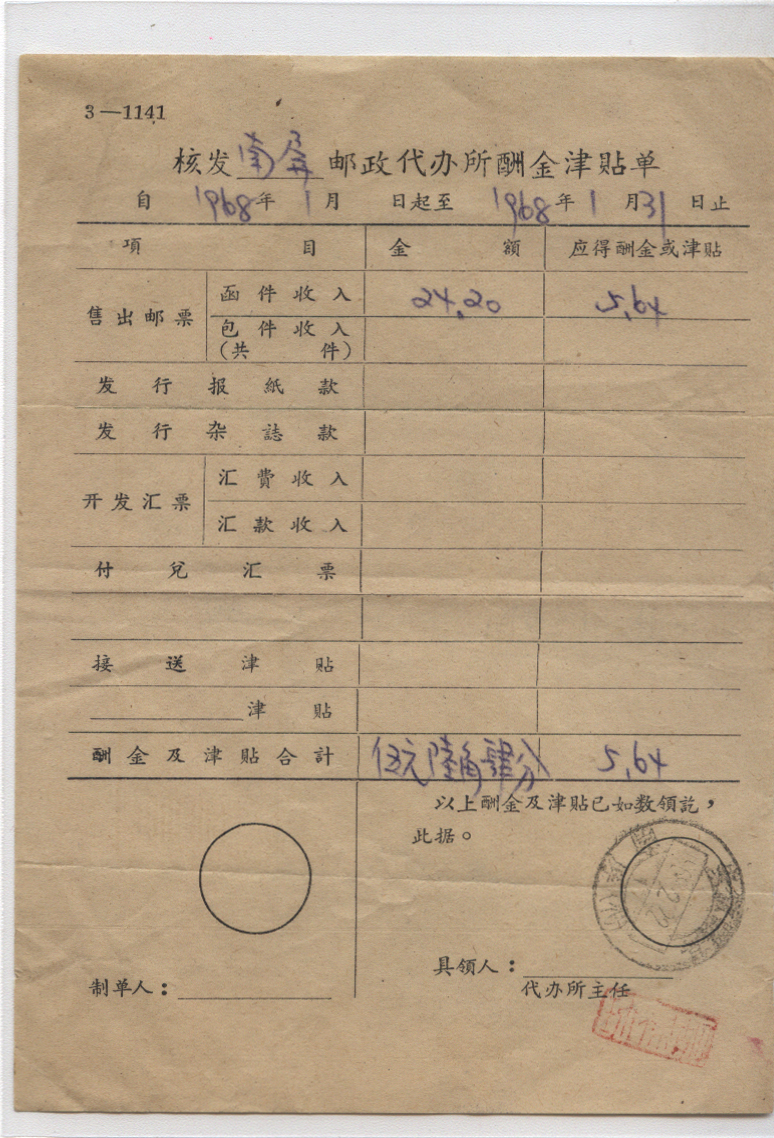 3—1141
核发南屏邮政代办所酬金津贴单
自1968年1月 日起至1968年1月31日止
項目 金額 应得酬金或津贴
售出邮票 函件收入 24.20 5.64
包件收入
(共 件)
发行报紙款
发行杂誌款
开发汇票 汇費收入
汇款收入
付兌汇票
接送津貼
津貼
酬金及津貼合計 伍元陸角肆分 5.64
以上酬金及津貼已如数領訖，
此据。
具領人：
制单人：
代办所主任